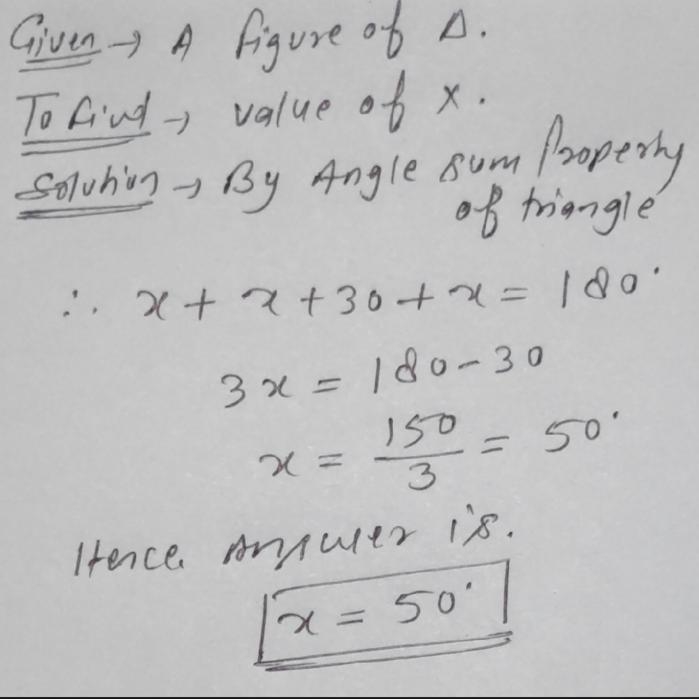 Given → A figure of Δ.
To find → value of x.
Solution → By Angle sum Property
of triangle
∴ x + x + 30 + x = 180°
3x = 180 - 30
x = 150/3 = 50°
Hence Answer is.
x = 50°